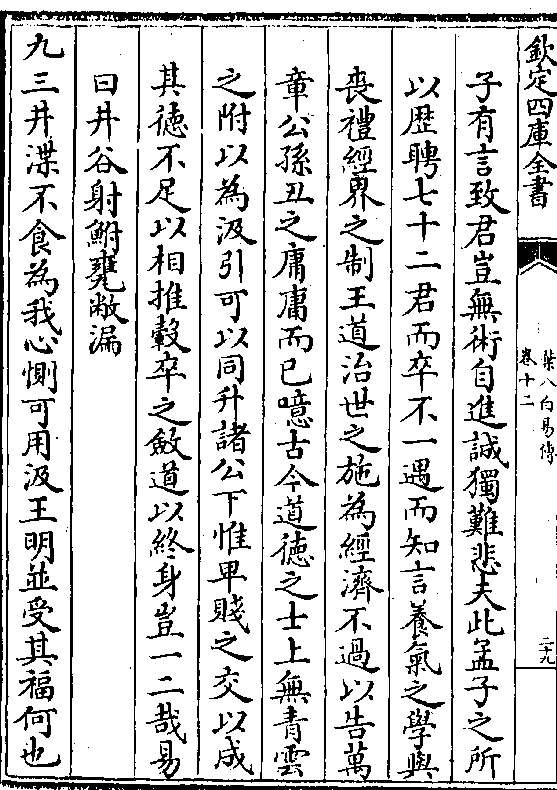 欽定四庫全書
葉八白易傳
卷十二
二十九
子有言致君豈無術自進誠獨難悲夫此孟子之所
以歴聘七十二君而卒不一遇而知言養氣之學與
喪禮經界之制王道治世之施為經濟不過以告萬
章公孫丑之庸庸而已噫古今道徳之士上無青雲
之附以為汲引可以同升諸公下惟卑賤之交以成
其徳不足以相推轂卒之斂道以終身豈一二哉易
曰井谷射鮒甕敝漏
九三井渫不食為我心惻可用汲王明並受其福何也